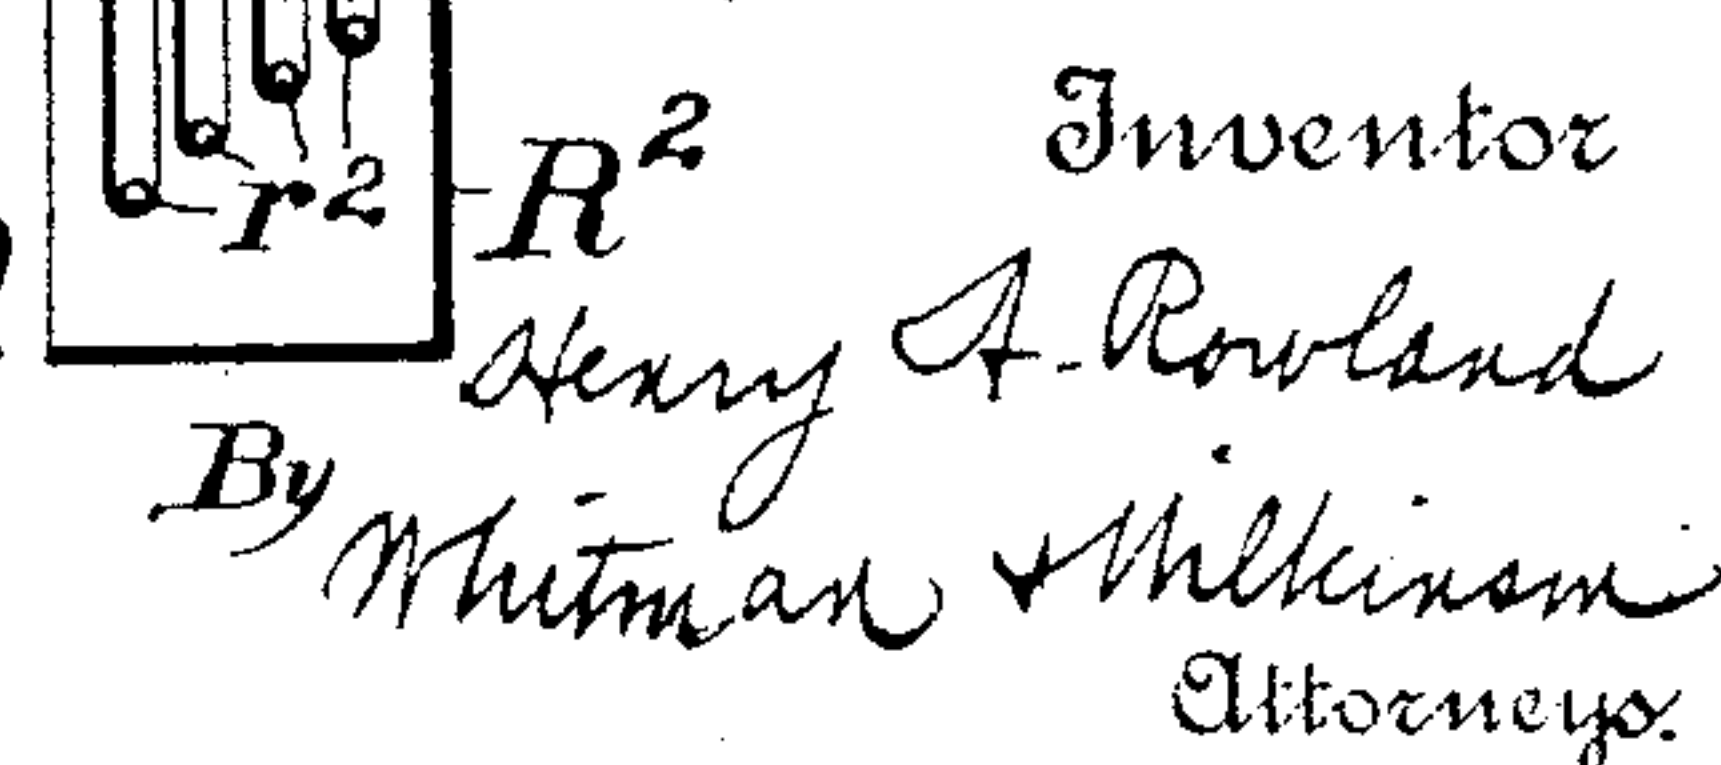 Inventor
r²
R²
Henry A. Rowland
By
Whitman & Wilkinson
Attorneys.